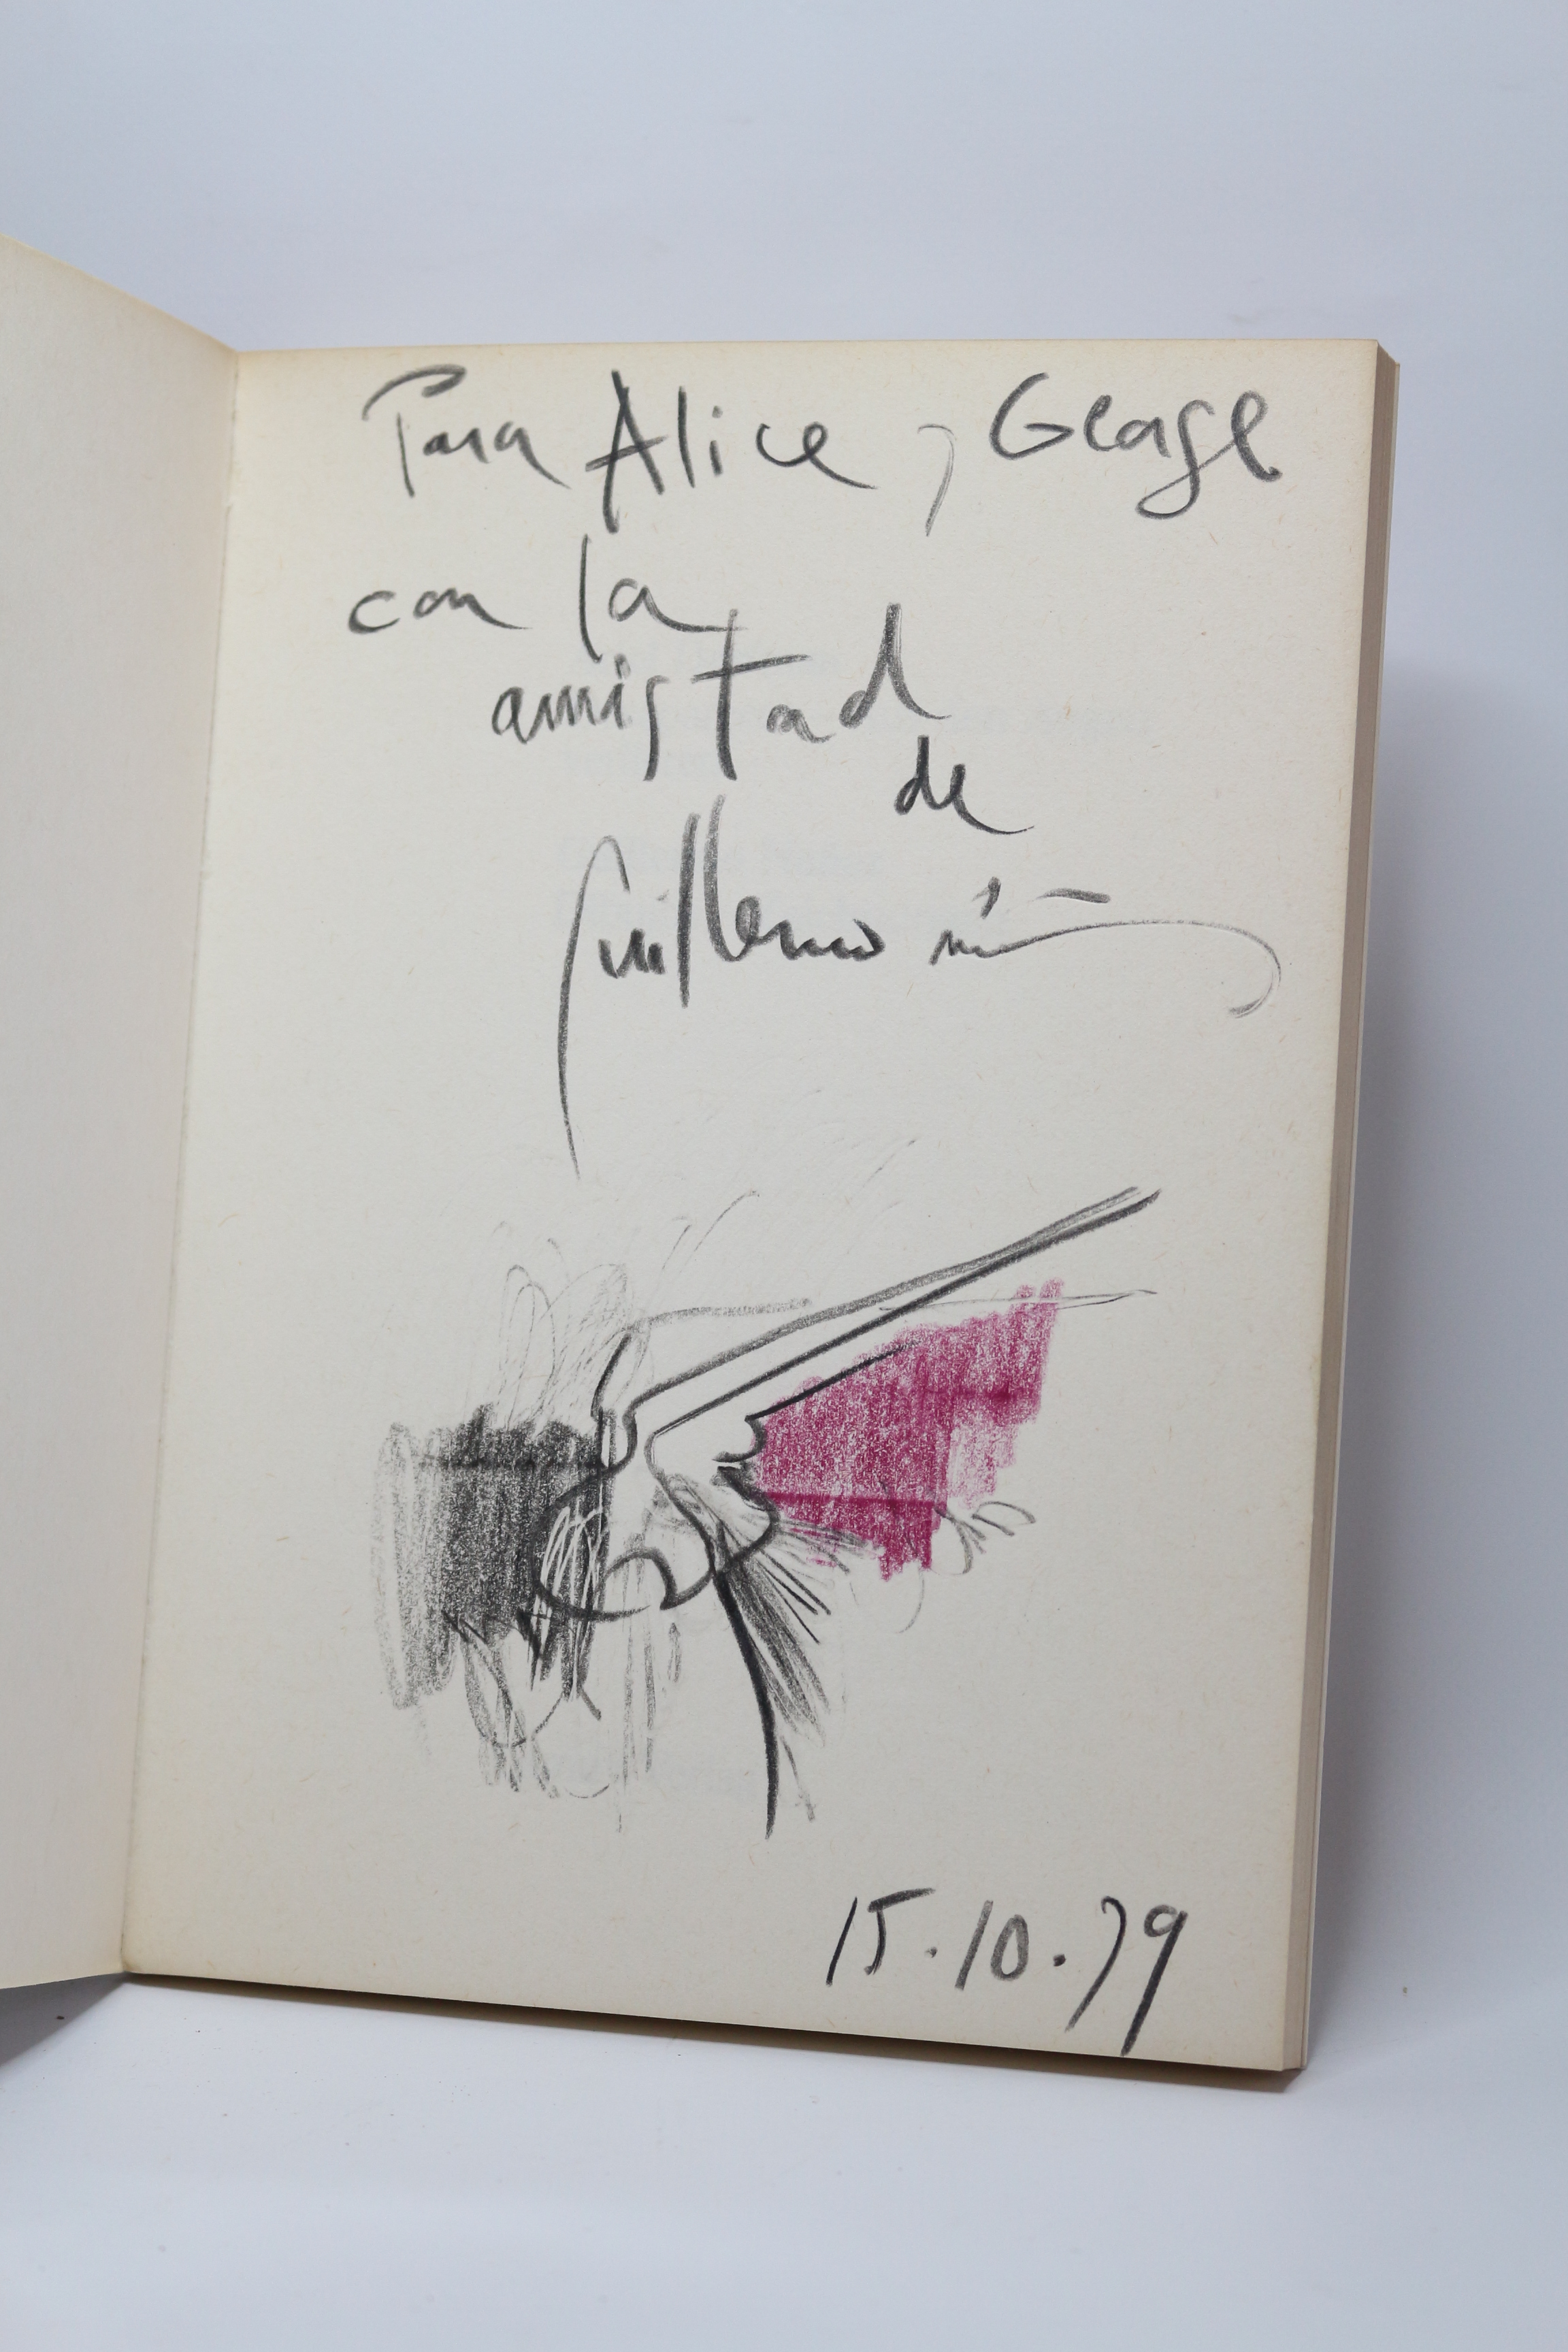 Para Alice y George
con la
amistad
de
Guillermo
15.10.79